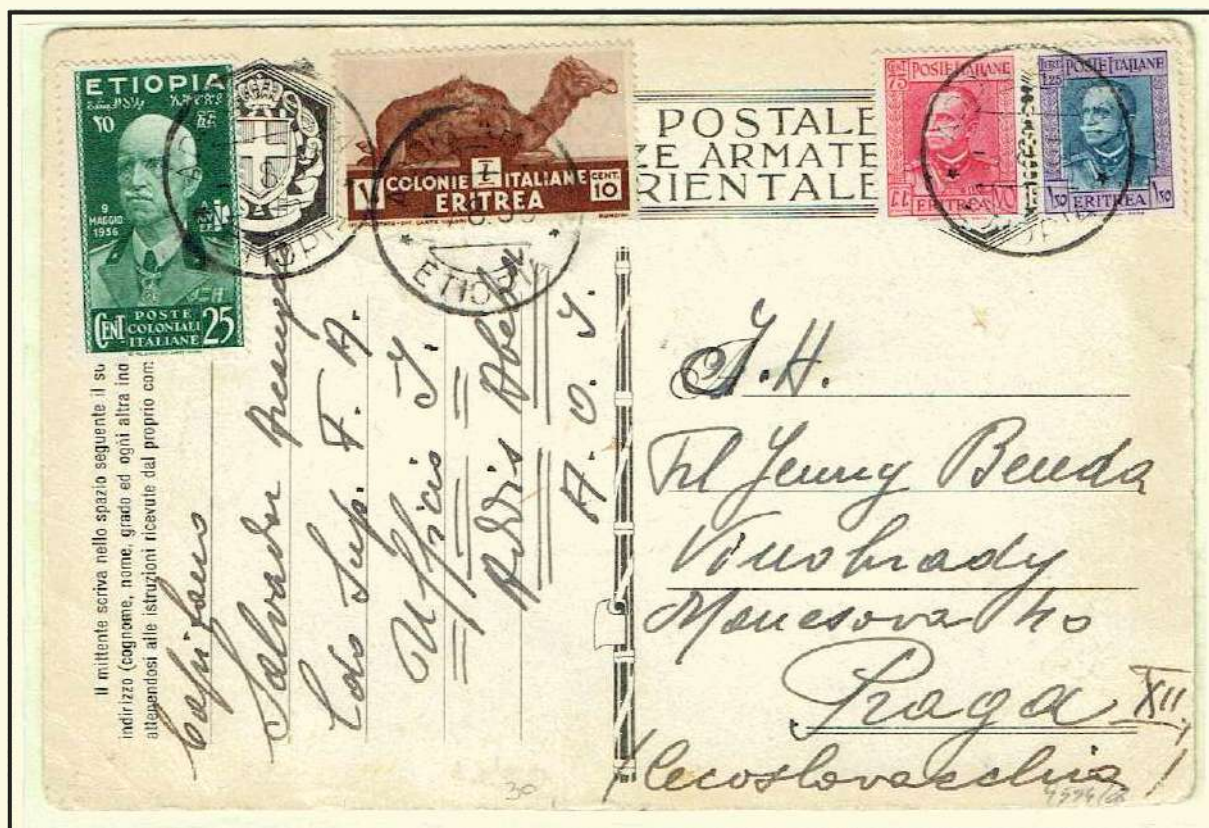 ETIOPIA
٢٥
9
MAGGIO
1936
CENT 25
POSTE
COLONIALI
ITALIANE
COLONIE ITALIANE
ERITREA
CENT.
10
ETIOPIA
POSTALE
ZE ARMATE
RIENTALE
CENT
75
POSTE ITALIANE
ERITREA
CENT
1,25
POSTE ITALIANE
ERITREA
Il mittente scriva nello spazio seguente il su
indirizzo (cognome, nome, grado ed ogni altra ind
attenendosi alle istruzioni ricevute dal proprio com
Salvador
Cdo Sup. F. A.
Ufficio I.
Addis Abeba
A. O. I.
Frl Jenny Benda
Vinohrady
Manesova 40
Praga XII
(Cecoslovacchia)